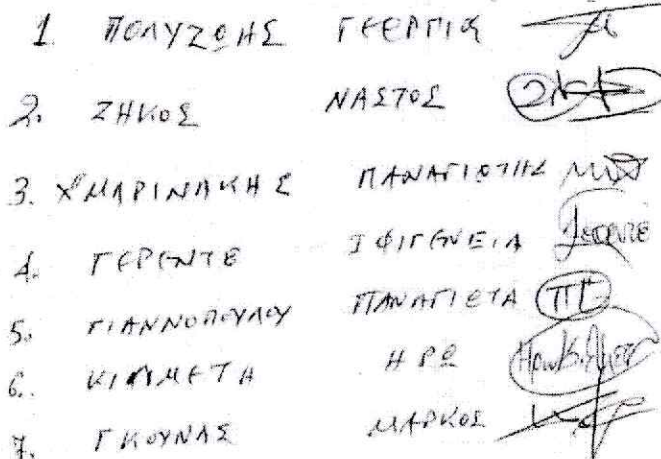 1 ΠΟΛΥΖΩΗΣ ΓΕΩΡΓΙΟΣ
2. ΖΗΚΟΣ ΝΑΣΤΟΣ
3. ΜΑΡΙΝΑΚΗΣ ΠΑΝΑΓΙΩΤΗΣ
4. ΓΕΡΕΝΤΕ ΙΦΙΓΕΝΕΙΑ
5. ΓΙΑΝΝΟΠΟΥΛΟΥ ΠΑΝΑΓΙΩΤΑ ΠΓ
6. ΗΡΩ
7. ΓΚΟΥΝΑΣ ΜΑΡΚΟΣ